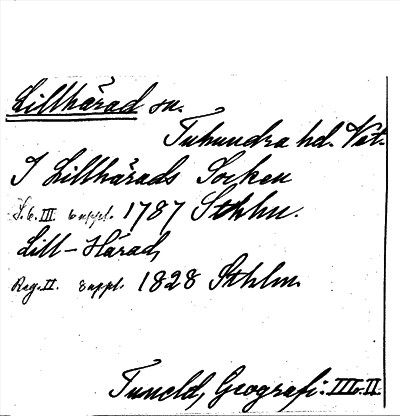 Lillhärad sn.
Tuhundra hd. Vstm.
I Lillhärads Socken
S. 6. III. Suppl. 1787 Sthlm.
Lill-Härad,
Reg. II. Suppl. 1828 Sthlm.
Tuneld, Geografi. III-II.